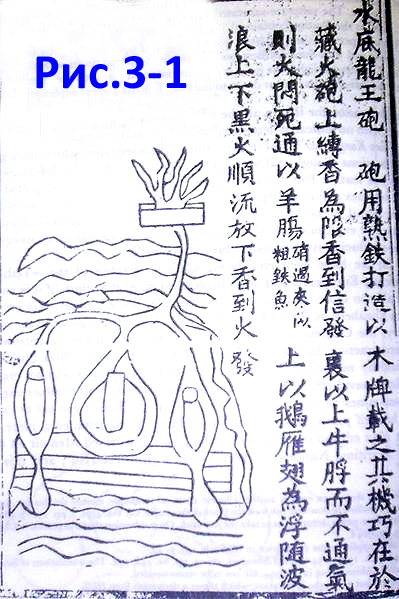 Рис.3-1
水底龍王砲 砲用熟鉄打造以木牌載之其機巧在於
藏火砲上縛香為限香到信發裏以上牛脬而不通氣
則火悶死通以羊腸硝過夾以粗鉄魚上以鵝雁翅為浮随波
浪上下黒火順流放下香到火發